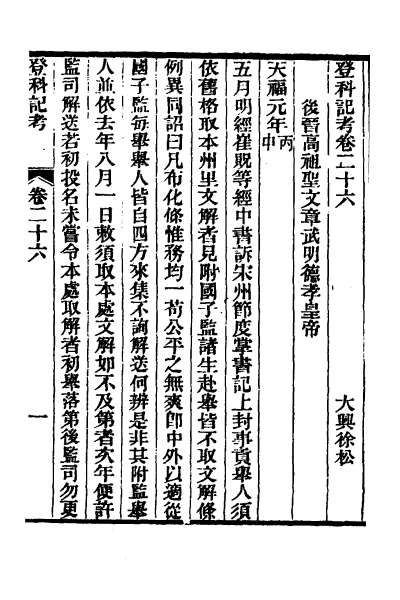 登科記考卷二十六
大興徐松
後晉高祖聖文章武明德孝皇帝
天福元年丙申
五月明經崔貺等經中書訴宋州節度掌書記上封事責舉人須
依舊格取本州里文解者見附國子監諸生赴舉皆不取文解條
例異同詔曰凡布化條惟務均一苟公平之無爽卽中外以適從
國子監每舉舉人皆自四方來集不詢解送何辨是非其附監舉
人並依去年八月一日敕須取本處文解如不及第者次年便許
監司解送若初投名未嘗令本處取解者初舉落第後監司勿更
登科記考
卷二十六
一